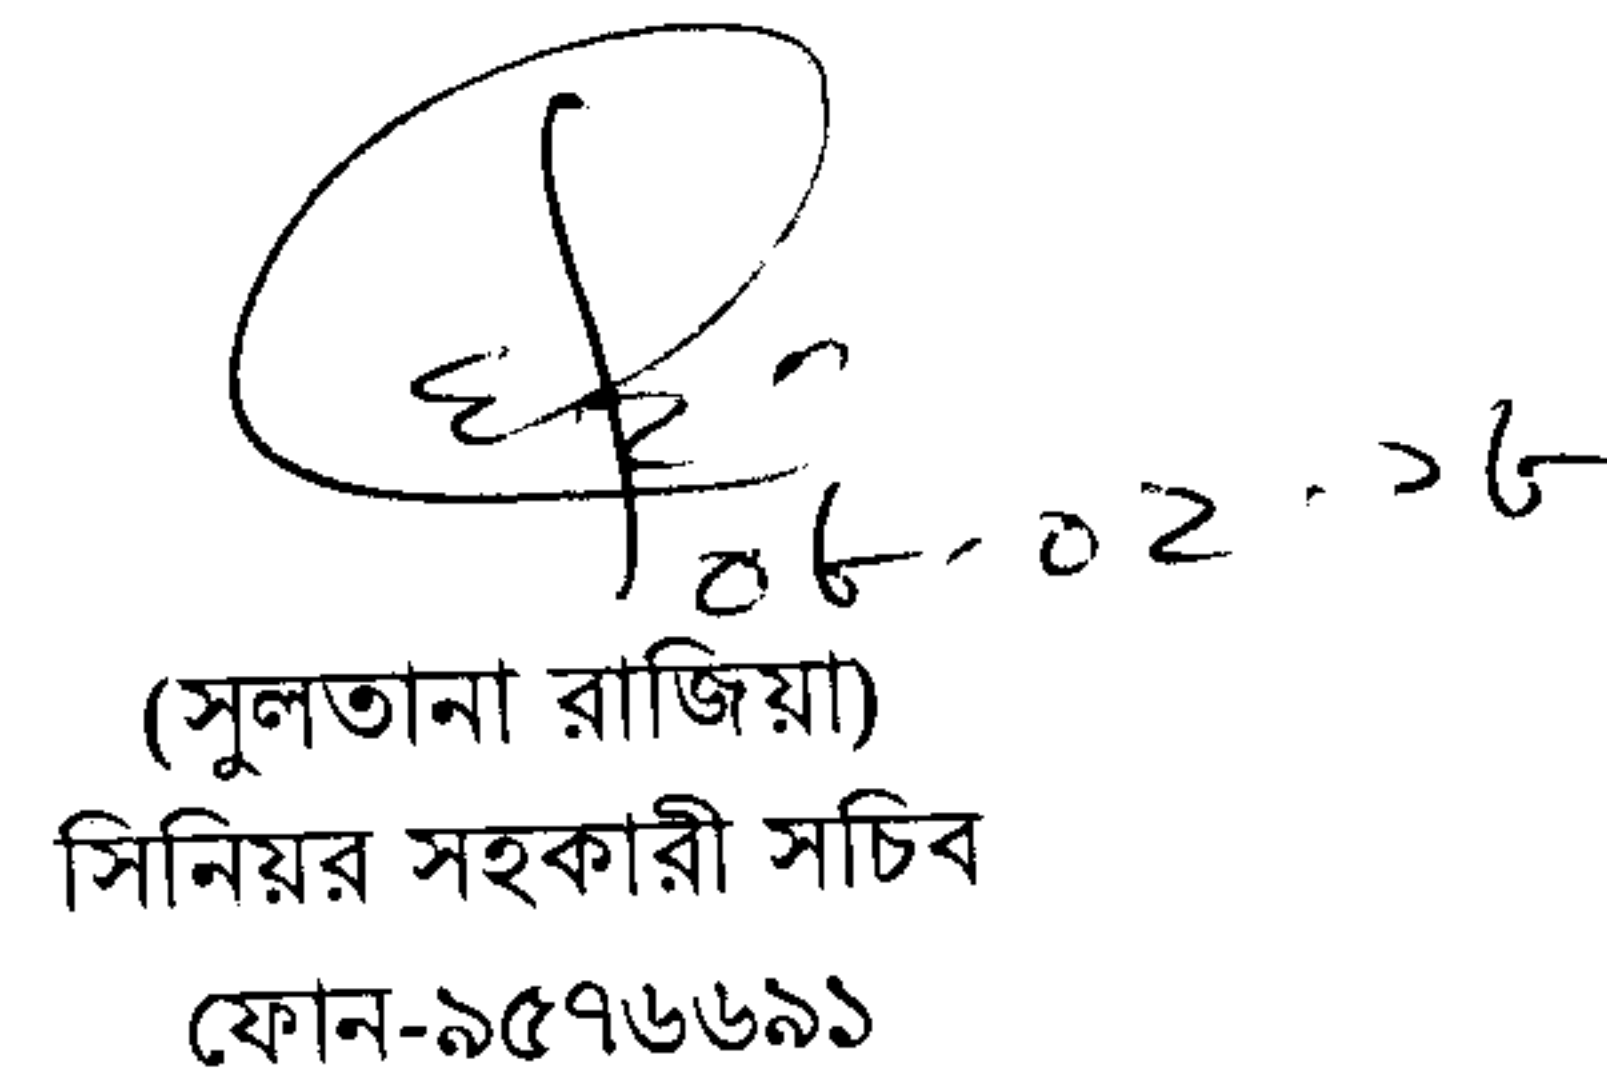 ০৮-০২.১৮
(সুলতানা রাজিয়া)
সিনিয়র সহকারী সচিব
ফোন-৯৫৭৬৬৯১